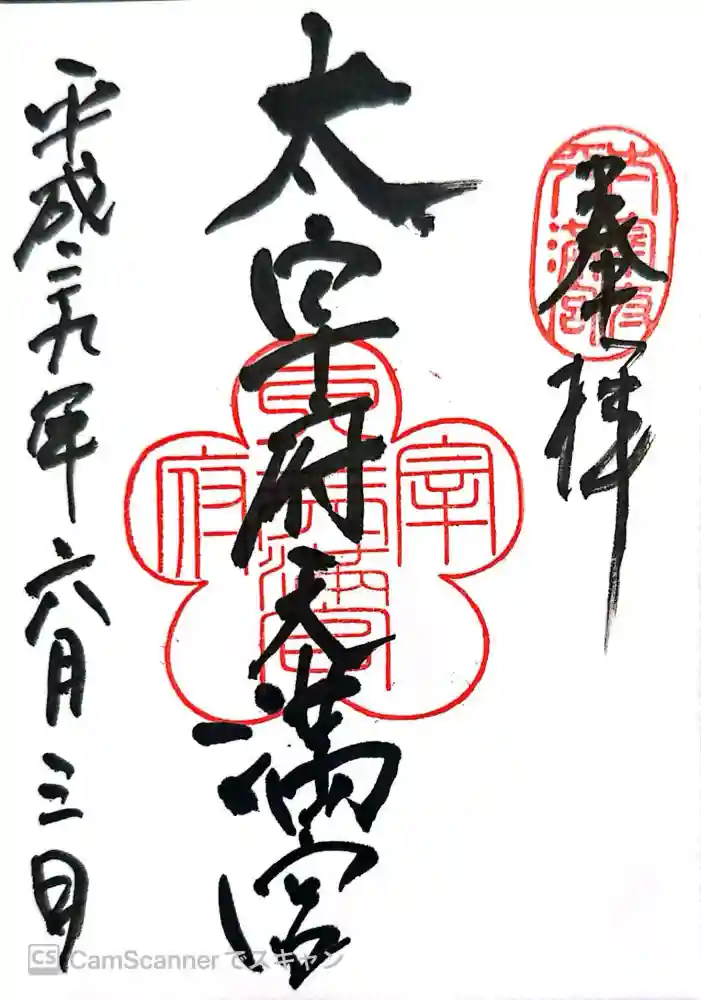 奉拝
太宰府天満宮
平成二十九年六月三日
CS CamScannerでスキャン